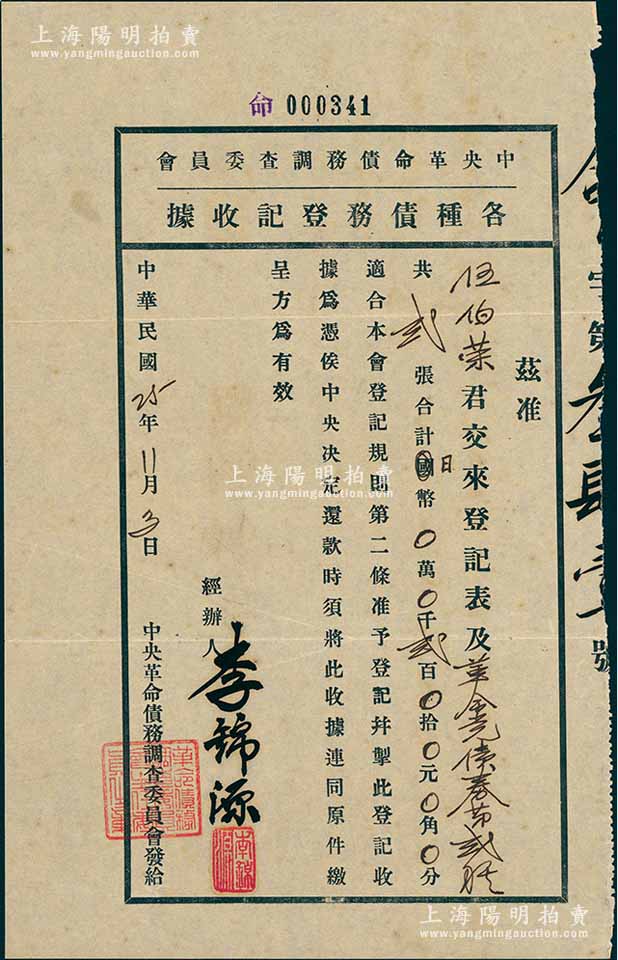 上海陽明拍賣
www.yangmingauction.com
命 000341
中央革命債務調查委員會
各種債務登記收據
茲准
伍伯荣君交來登記表及革命債券
共弍張合計國日幣0萬0千弍百0拾0元0角0分
適合本會登記規則第二條准予登記幷掣此登記收
據爲憑俟中央决定還款時須將此收據連同原件繳
呈方爲有效
經辦人 李錦源
中華民國25年11月3日
中央革命債務調查委員會發給
字第叁肆壹號
上海陽明拍賣
www.yangmingauction.com
上海陽明拍賣
www.yangmingauction.com